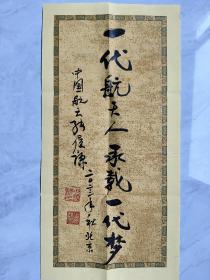 一代航天人承载一代梦
二〇二三年秋北京
中国航天张履谦